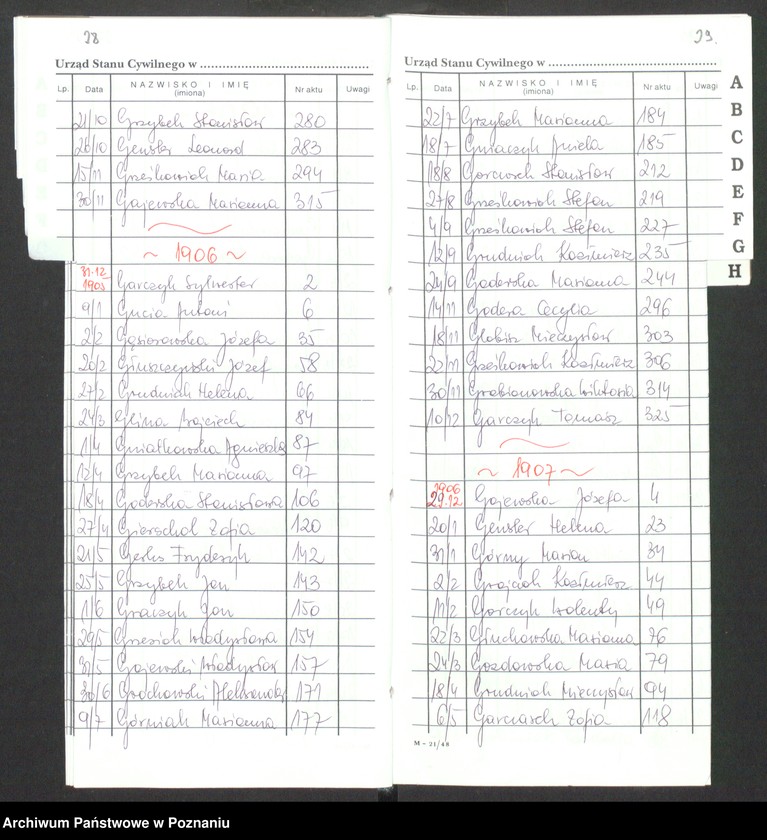 28
Urząd Stanu Cywilnego w
Lp. Data NAZWISKO I IMIĘ (imiona) Nr aktu Uwagi
21/10 Grzybek Stanisław 280
26/10 Gensler Leonard 283
15/11 Grześkowiak Maria 294
30/11 Gajewska Marianna 315
~ 1906 ~
31.12 1905 Garczyk Sylwester 2
9/1 Gucia Antoni 6
2/2 Gąsiorowska Józefa 35
20/2 Głuszczyński Józef 58
27/2 Grudniak Helena 66
24/3 Glina Wojciech 84
1/4 Gwiatkowska Agnieszka 87
12/4 Grzybek Marianna 97
18/4 Goderska Stanisława 106
27/4 Gierschol Zofia 120
21/5 Gerks Fryderyk 142
25/5 Grzybek Jan 143
1/6 Graczyk Jan 150
29/5 Grzesiak Władysława 154
31/5 Gajewski Władysław 157
30/6 Grochowski Aleksander 171
9/7 Górniak Marianna 177
29.
Urząd Stanu Cywilnego w
Lp. Data NAZWISKO I IMIĘ (imiona) Nr aktu Uwagi
22/7 Grzybek Marianna 184
18/7 Gniaczyk Aniela 185
18/8 Stanisław 212
27/8 Grześkowiak Stefan 219
4/9 Grześkowiak Stefan 227
12/9 Grudniak Kazimierz 235
24/9 Goderska Marianna 244
14/11 Godera Cecylia 296
18/11 Globisz Mieczysław 303
22/11 Grześkowiak Kazimierz 306
30/11 Grabianowska Wiktoria 314
10/12 Garczyk Tomasz 325
~ 1907 ~
1906 29.12 Gajewska Józefa 4
20/1 Gensler Helena 23
31/1 Górny Marian 34
2/2 Kazimierz 44
11/2 Gorczyk Walenty 49
22/3 Głuchowska Marianna 76
24/3 Gozdowska Maria 79
18/4 Grudniak Mieczysław 94
6/5 Zofia 118
M - 21/48
A
B
C
D
E
F
G
H
Archiwum Państwowe w Poznaniu